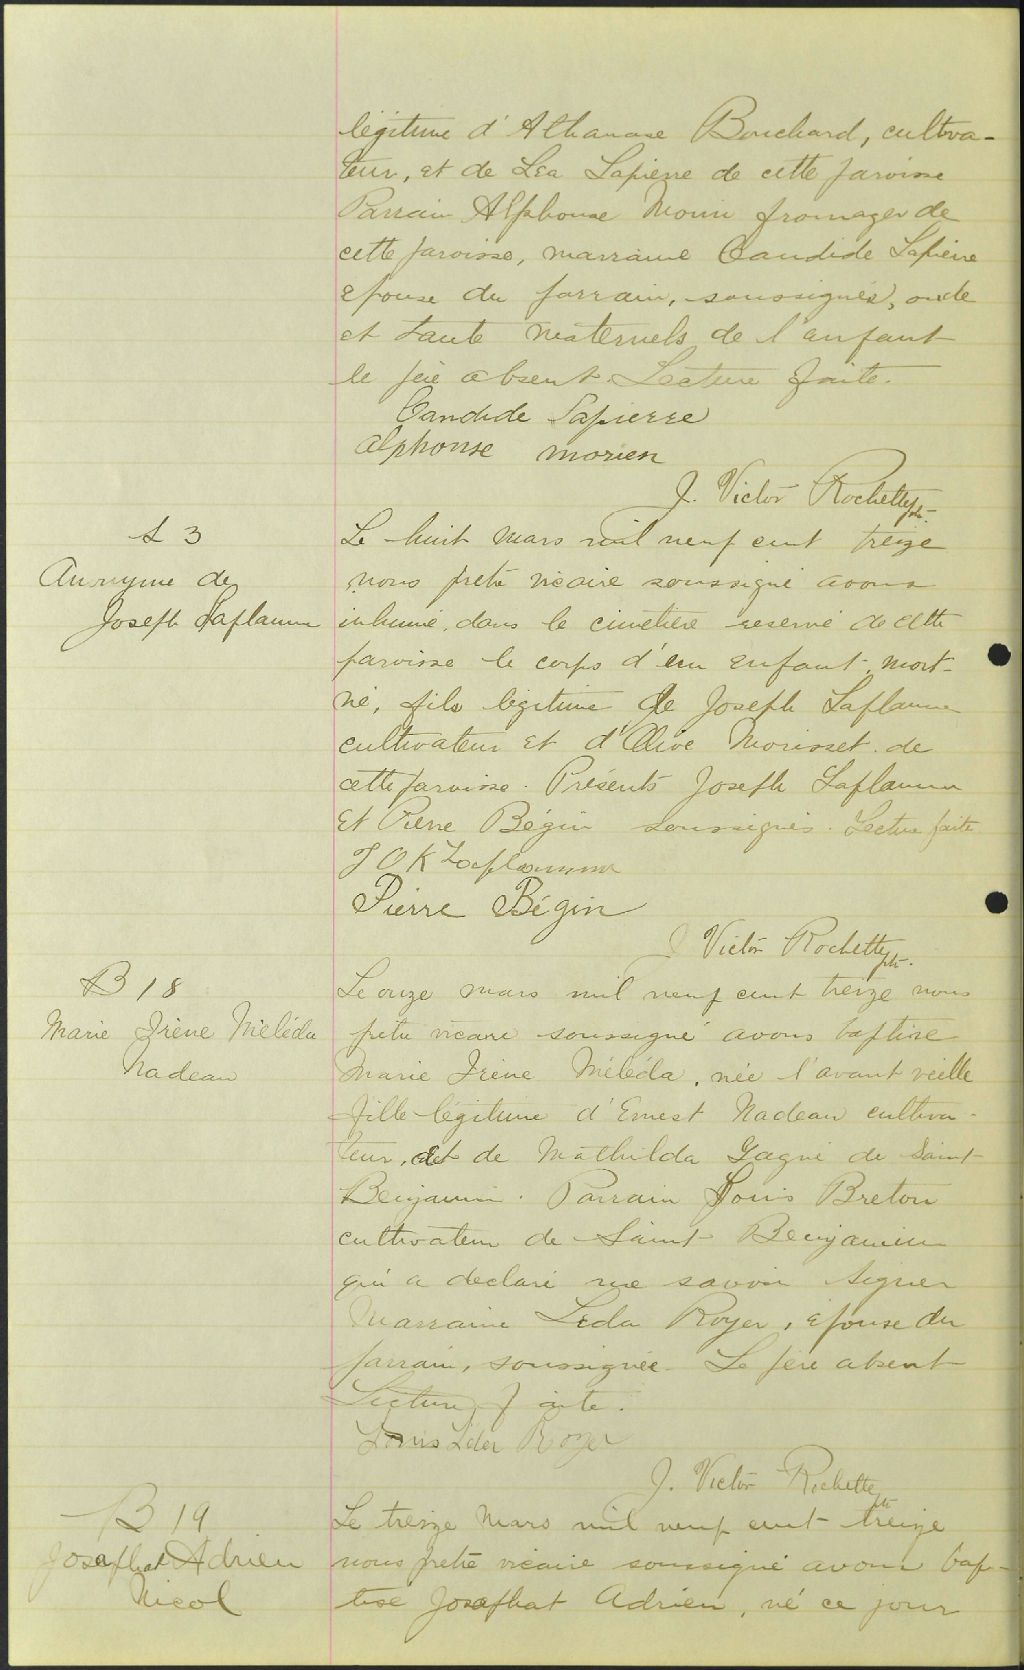 légitime d'Athanase Bouchard, cultiva-
teur, et de Léa Lapierre de cette paroisse
Parrain Alphonse Morin fromager de
cette paroisse, marraine Candide Lapierre
épouse du parrain, soussignés, oncle
et tante maternels de l'enfant
le père absent. Lecture faite.
Candide Lapierre
alphonse morien
J. Victor Rochette ptr.
S 3
Anonyme de
Joseph Laflamme
Le huit mars mil neuf cent treize
nous prêtre vicaire soussigné avons
inhumé, dans le cimetière réservé de cette
paroisse le corps d'un enfant, mort-
né, fils légitime de Joseph Laflamme
cultivateur et d'Olive Morisset de
cette paroisse. Présents Joseph Laflamme
et Pierre Bégin soussignés. Lecture faite
Laflamme
Pierre Bégin
J Victor Rochette ptr.
B 18
Marie Irène Méléda
Nadeau
Le onze mars mil neuf cent treize nous
prêtre vicaire soussigné avons baptisé
Marie Irène Méléda, née l'avant veille
fille légitime d'Ernest Nadeau cultiva-
teur, et de Mathilda Gagné de Saint
Benjamin. Parrain Louis Breton
cultivateur de Saint Benjamin
qui a déclaré ne savoir signer
Marraine Léda Royer, épouse du
parrain, soussignée. Le père absent
Lecture faite.
Royer
J. Victor Rochette ptr
B 19
Josaphat Adrien
Nicol
Le treize Mars mil neuf cent treize
nous prêtre vicaire soussigné avons bap-
tisé Josaphat Adrien, né ce jour